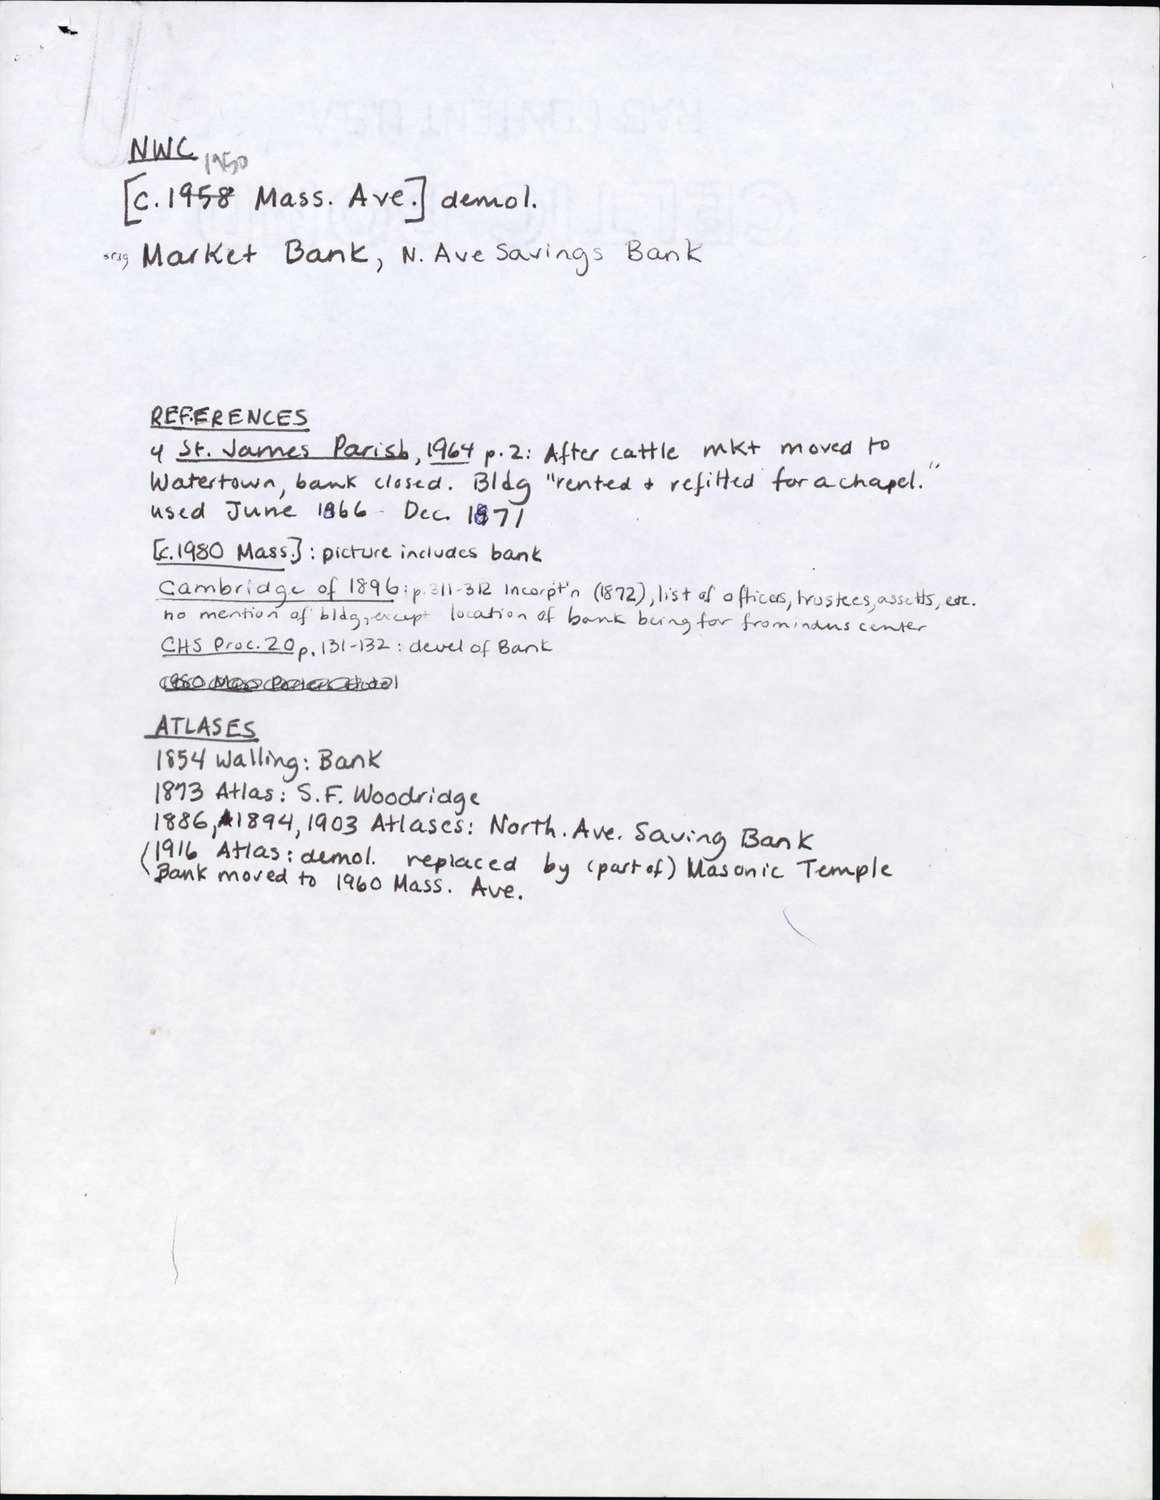 NWC
1950
[c. 1958 Mass. Ave.] demol.
orig Market Bank, N. Ave Savings Bank
REFERENCES
St. James Parish, 1964 p. 2: After cattle mkt moved to
Watertown, bank closed. Bldg "rented + refitted for a chapel."
used June 1866 - Dec. 1871
[c. 1980 Mass.]: picture includes bank
Cambridge of 1896: p. 311-312 Incorpt'n (1872), list of officers, trustees, assetts, etc.
no mention of bldg, except location of bank being far from indus center
CHS Proc. 20 p. 131-132: devel of Bank
ATLASES
1854 Walling: Bank
1873 Atlas: S.F. Woodridge
1886, 1894, 1903 Atlases: North. Ave. Saving Bank
(1916 Atlas: demol. replaced by (part of) Masonic Temple
Bank moved to 1960 Mass. Ave.